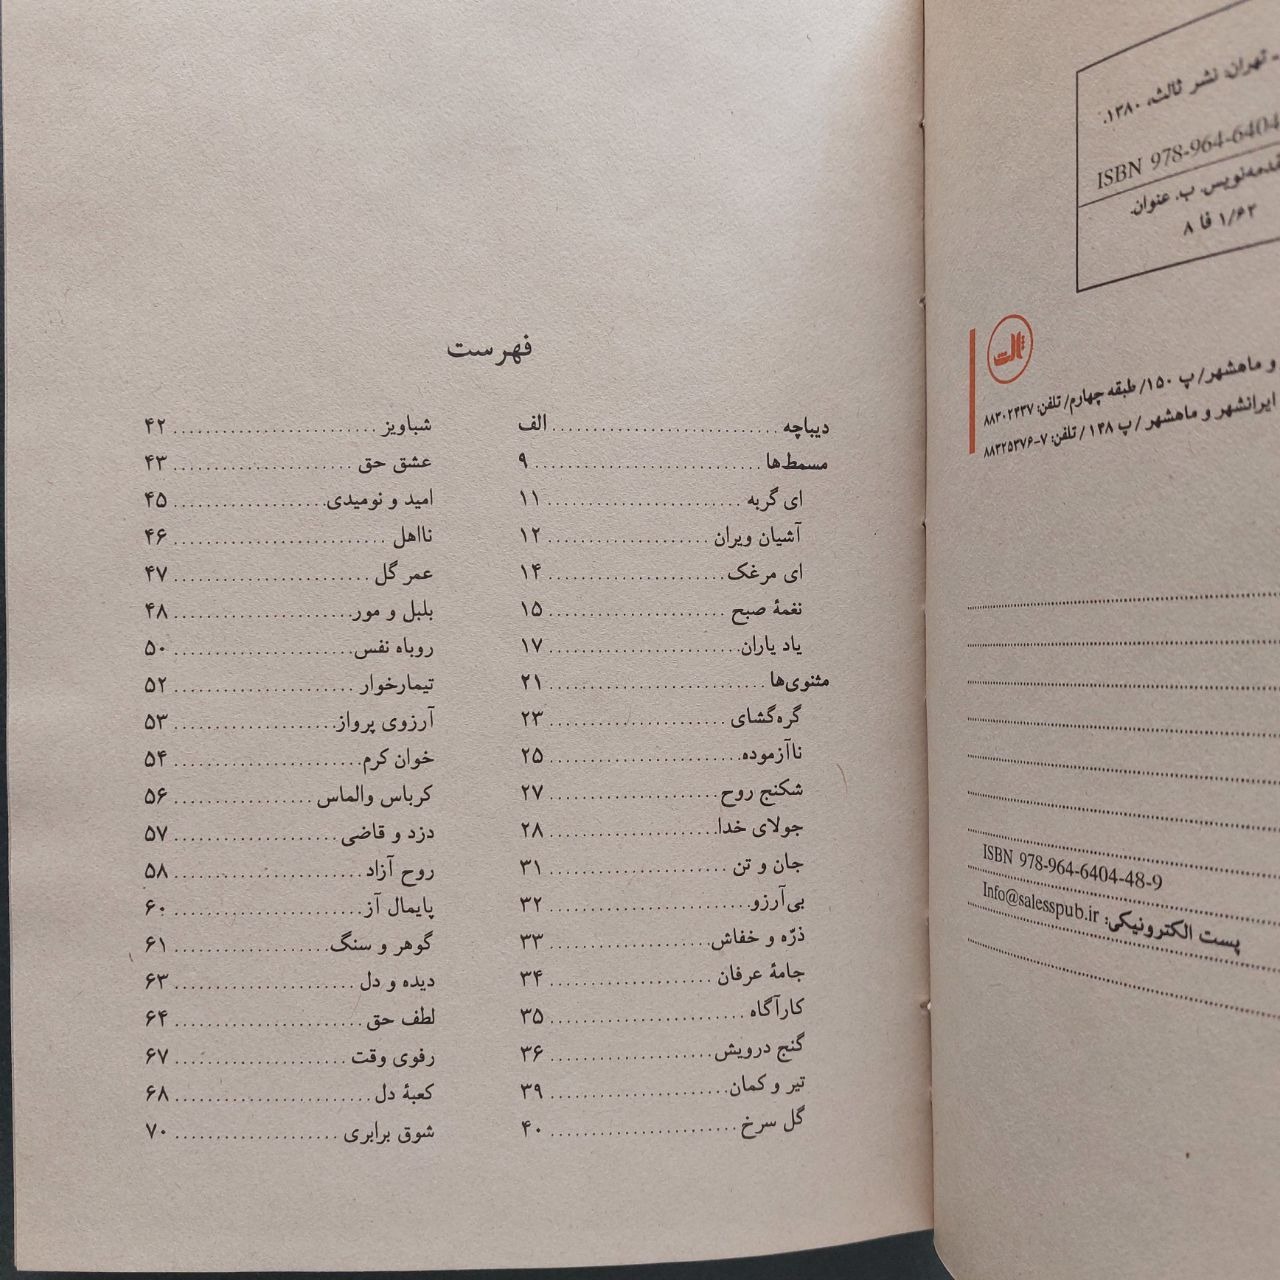 - تهران: نشر ثالث، ۱۳۸۰.
ISBN 978-964-6404
ب. عنوان.
۸ فا ۱/۶۲
ثالث
و ماهشهر/ پ ۱۵۰/ طبقه چهارم/ تلفن: ۸۸۳۰۲۴۳۷
ایرانشهر و ماهشهر / پ ۱۴۸ / تلفن: ۷-۸۸۳۲۵۳۷۶
ISBN 978-964-6404-48-9
پست الکترونیکی: Info@salesspub.ir
فهرست
دیباچه ........ الف
مسمط‌ها ........ ۹
ای گربه ........ ۱۱
آشیان ویران ........ ۱۲
ای مرغک ........ ۱۴
نغمهٔ صبح ........ ۱۵
یاد یاران ........ ۱۷
مثنوی‌ها ........ ۲۱
گره‌گشای ........ ۲۳
ناآزموده ........ ۲۵
شکنج روح ........ ۲۷
جولای خدا ........ ۲۸
جان و تن ........ ۳۱
بی‌آرزو ........ ۳۲
ذرّه و خفاش ........ ۳۳
جامهٔ عرفان ........ ۳۴
کارآگاه ........ ۳۵
گنج درویش ........ ۳۶
تیر و کمان ........ ۳۹
گل سرخ ........ ۴۰
شباویز ........ ۴۲
عشق حق ........ ۴۳
امید و نومیدی ........ ۴۵
نااهل ........ ۴۶
عمر گل ........ ۴۷
بلبل و مور ........ ۴۸
روباه نفس ........ ۵۰
تیمارخوار ........ ۵۲
آرزوی پرواز ........ ۵۳
خوان کرم ........ ۵۴
کرباس والماس ........ ۵۶
دزد و قاضی ........ ۵۷
روح آزاد ........ ۵۸
پایمال آز ........ ۶۰
گوهر و سنگ ........ ۶۱
دیده و دل ........ ۶۳
لطف حق ........ ۶۴
رفوی وقت ........ ۶۷
کعبهٔ دل ........ ۶۸
شوق برابری ........ ۷۰